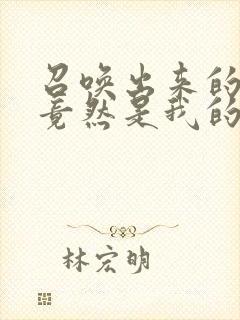 召唤出来的
竟然是我的
林宏明